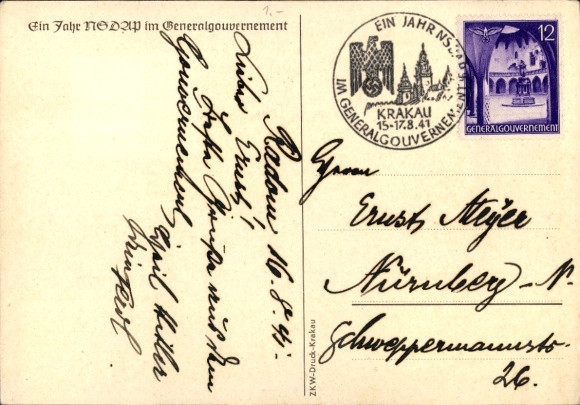 1.-
Ein Jahr NSDAP im Generalgouvernement
Radom 16.8.41.
Lieber Ernst!
Grüße aus dem
Gouvernement
Heil Hitler
EIN JAHR NSDAP
IM GENERALGOUVERNEMENT
KRAKAU
15-17.8.41
12
GENERALGOUVERNEMENT
Herrn
Ernst Meyer
Nürnberg-N.
Schweppermannstr.
26.
ZKW-Druck-Krakau